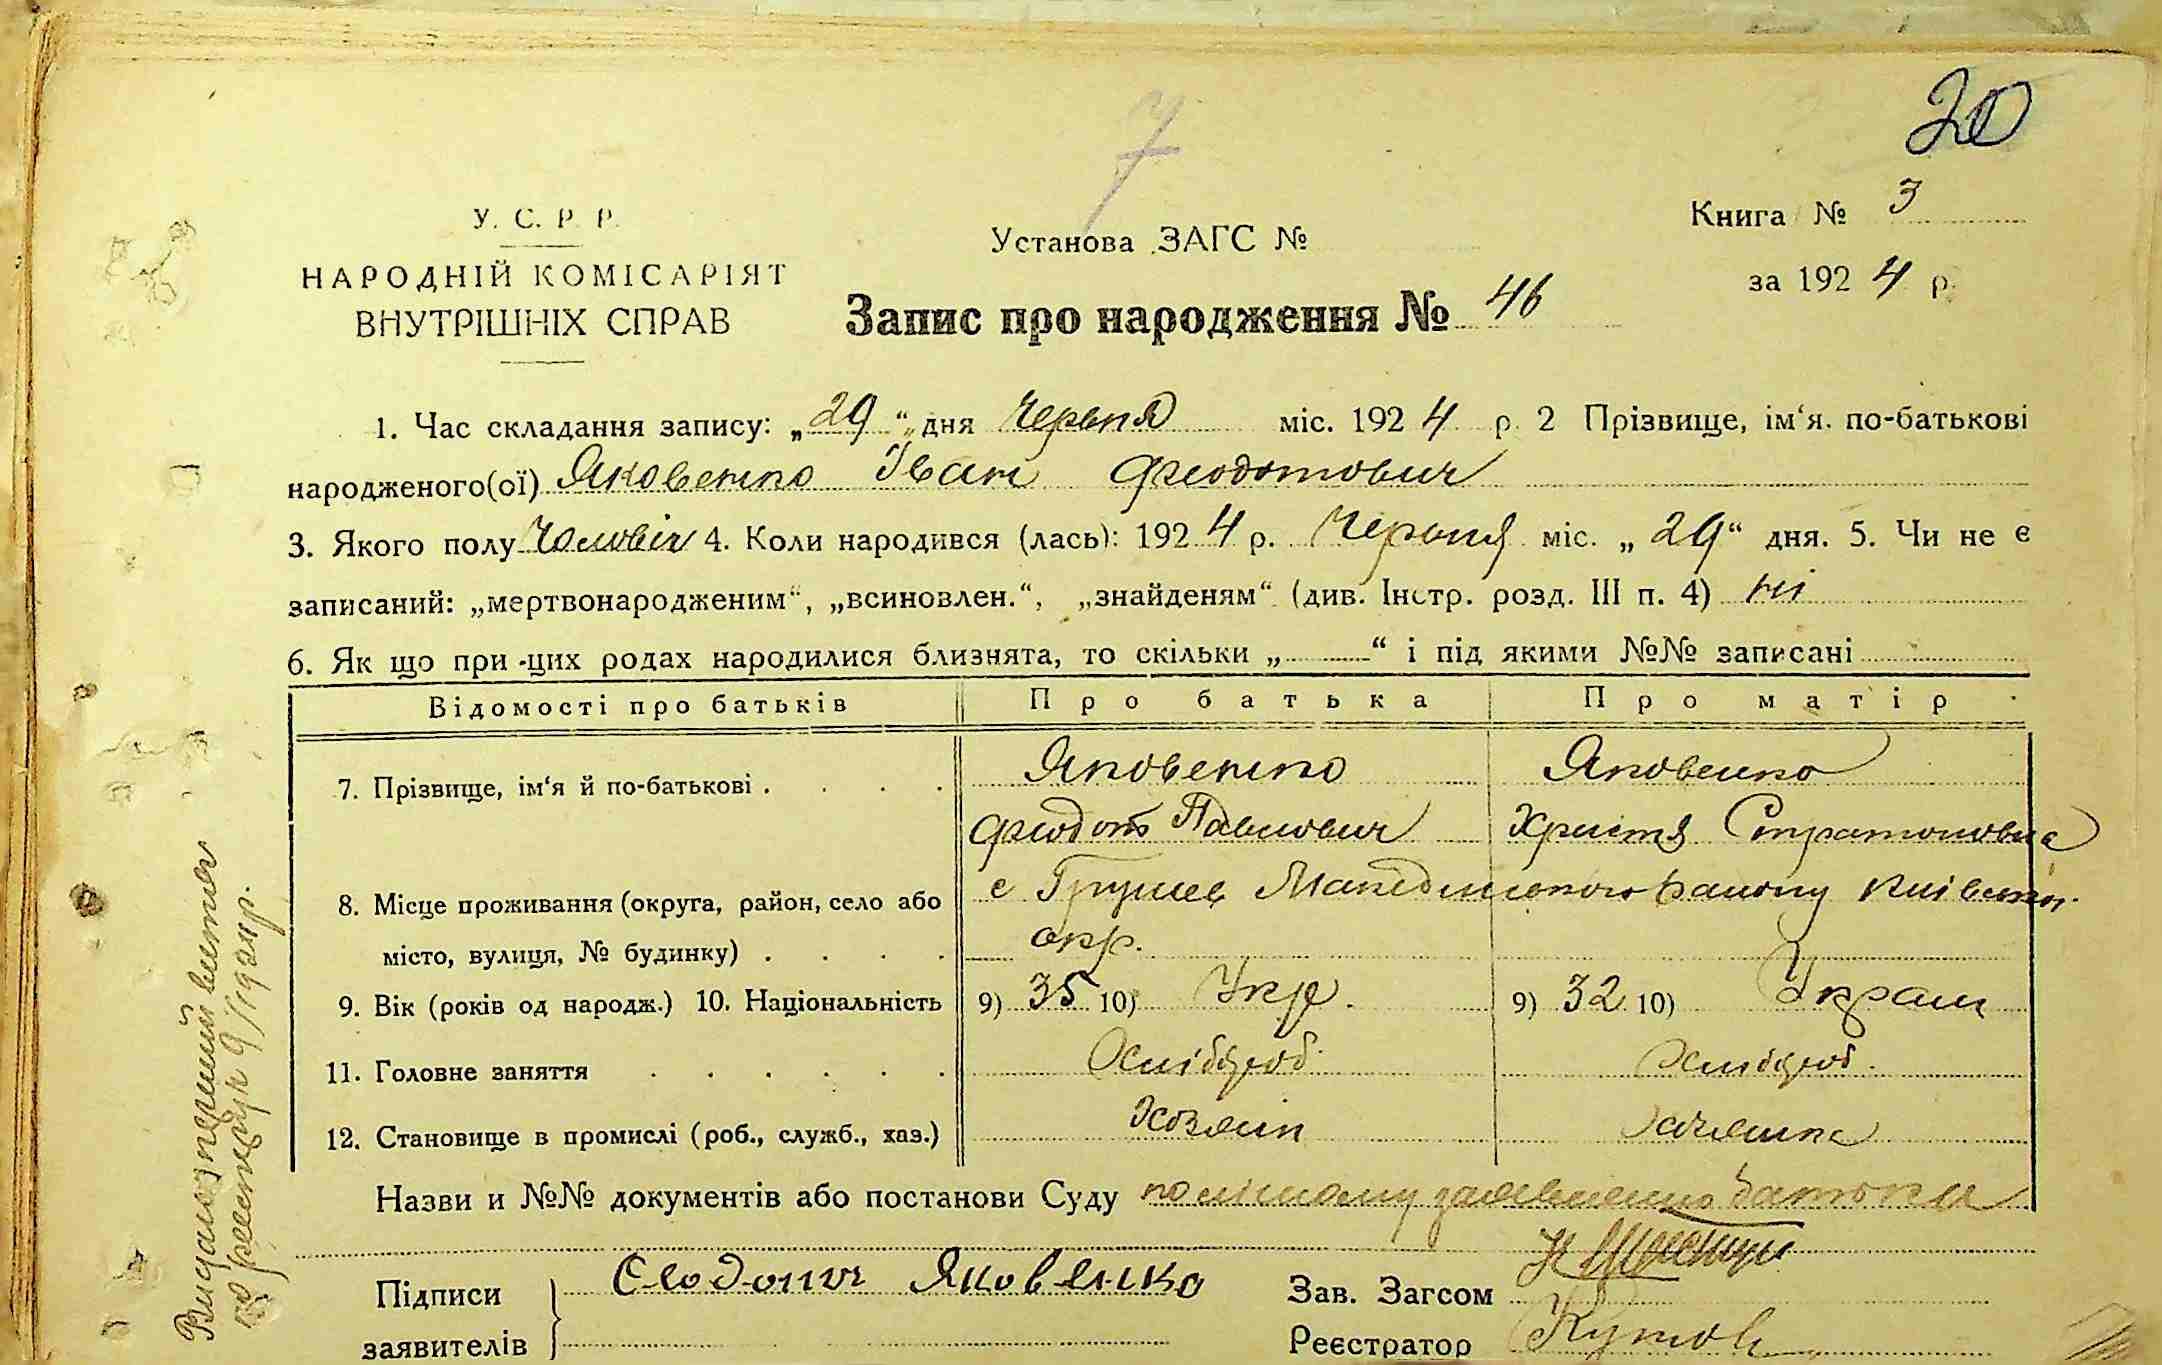 20
7
У. С. Р. Р.
НАРОДНІЙ КОМІСАРІЯТ
ВНУТРІШНІХ СПРАВ
Установа ЗАГС №
Запис про народження № 46
Книга № 3
за 1924 р.
1. Час складання запису: „29“ дня Червня міс. 1924 р. 2 Прізвище, ім‘я. по-батькові
народженого(ої) Яковенко Іван Феодотович
3. Якого полу Чоловіч 4. Коли народився (лась): 1924 р. Червня міс. „29“ дня. 5. Чи не є
записаний: „мертвонародженим“, „всиновлен.“, „знайденям“ (див. Інстр. розд. III п. 4) ні
6. Як що при цих родах народилися близнята, то скільки „ “ і під якими №№ записані
Відомості про батьків Про батька Про матір
7. Прізвище, ім‘я й по-батькові . . . . Яковенко Яковенко
Феодот Павлович Христя Стратоновна
8. Місце проживання (округа, район, село або с Грушев Македонського району Київської
місто, вулиця, № будинку) . . . . окр.
9. Вік (років од народж.) 10. Національність 9) 35 10) Укр. 9) 32 10) Украін
11. Головне заняття . . . . . . Хлібороб Хлібороб.
12. Становище в промислі (роб., служб., хаз.) Хозяін
Назви и №№ документів або постанови Суду по заявленню батька
Підписи Феодотъ Яковенко Зав. Загсом
заявителів Реєстратор
Видано перший витяг
по реєстр 9/I 1924 р.